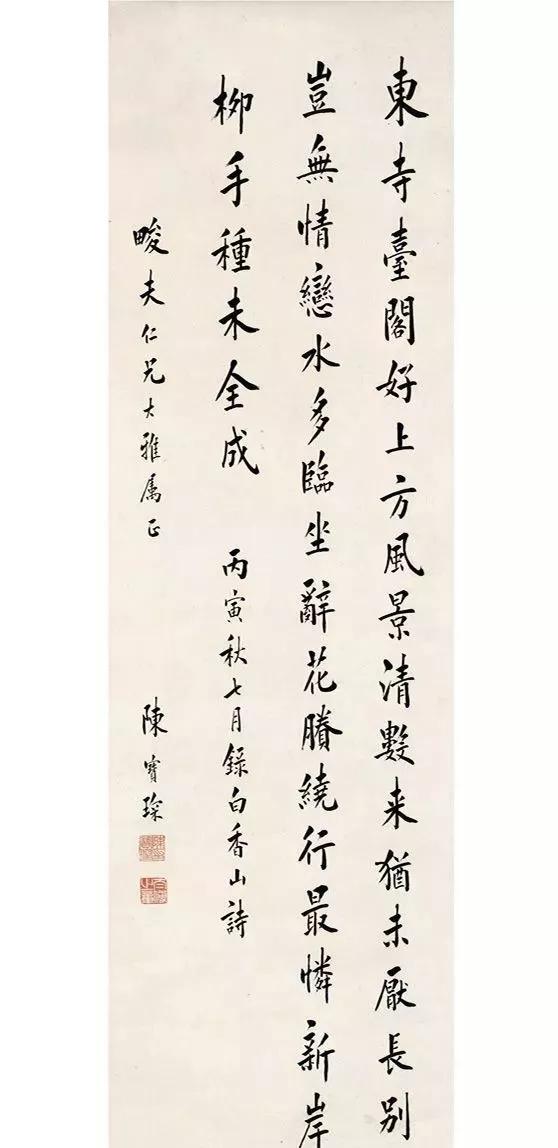 東寺臺閣好上方風景清數来猶未厭長别
豈無情戀水多臨坐辭花賸繞行最憐新岸
柳手種未全成 丙寅秋七月録白香山詩
畯夫仁兄大雅属正 陳寶琛